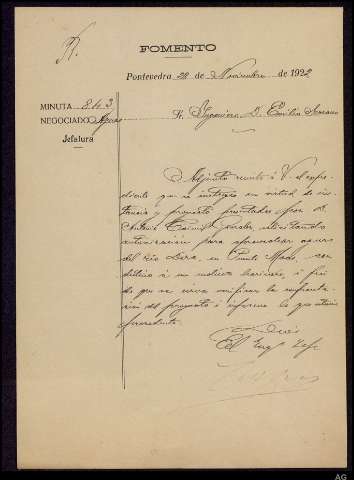 FOMENTO
Pontevedra 28 de Noviembre de 1922
MINUTA 843
NEGOCIADO Aguas
Jefatura
Sr. Ingeniero D. Emilio
Adjunto remito á V. el expe-
diente que se instruye en virtud de ins-
tancia y proyecto presentados por D.
Antonio solicitando
autorización para aprovechar aguas
del Río Lérez, en Puente, con
destino á un molino harinero, á fin
de que se sirva verificar la confronta-
ción del proyecto é informe lo que estime
procedente.
El Ingº Jefe
AG